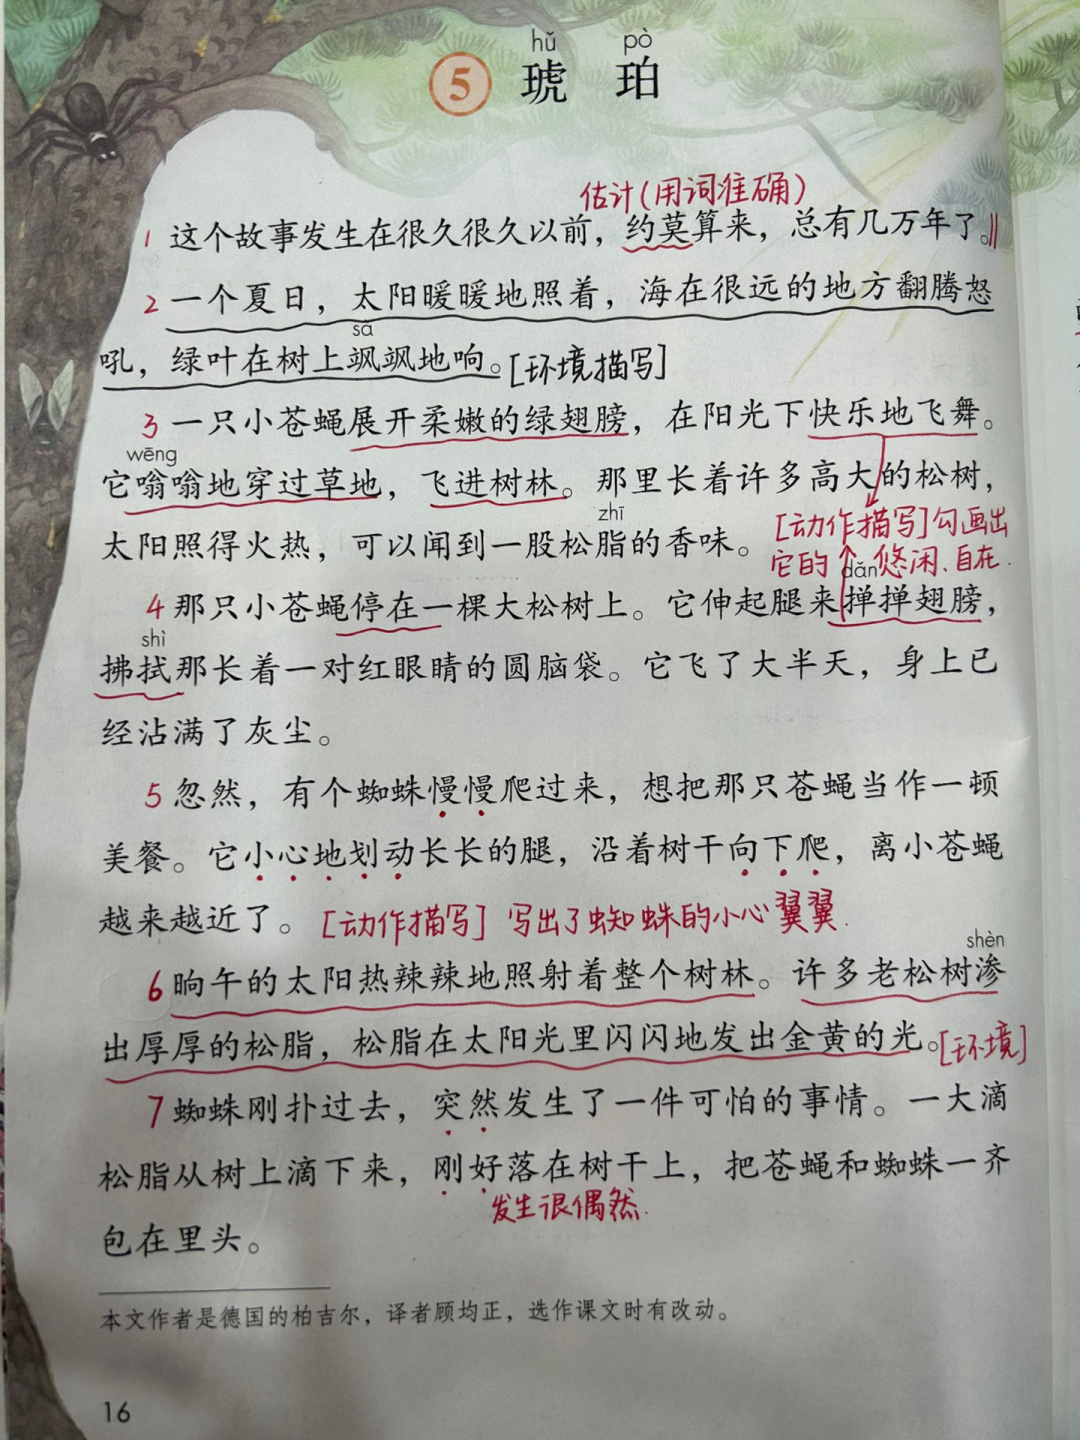 hǔ pò
5 琥珀
估计(用词准确)
1 这个故事发生在很久很久以前，约莫算来，总有几万年了。
2 一个夏日，太阳暖暖地照着，海在很远的地方翻腾怒
sà
吼，绿叶在树上飒飒地响。[环境描写]
3 一只小苍蝇展开柔嫩的绿翅膀，在阳光下快乐地飞舞。
wēng
它嗡嗡地穿过草地，飞进树林。那里长着许多高大的松树，
zhī
太阳照得火热，可以闻到一股松脂的香味。
[动作描写]勾画出
它的悠闲、自在.
dǎn
4 那只小苍蝇停在一棵大松树上。它伸起腿来掸掸翅膀，
shì
拂拭那长着一对红眼睛的圆脑袋。它飞了大半天，身上已
经沾满了灰尘。
5 忽然，有个蜘蛛慢慢爬过来，想把那只苍蝇当作一顿
美餐。它小心地划动长长的腿，沿着树干向下爬，离小苍蝇
越来越近了。[动作描写] 写出了蜘蛛的小心翼翼.
shèn
6 晌午的太阳热辣辣地照射着整个树林。许多老松树渗
出厚厚的松脂，松脂在太阳光里闪闪地发出金黄的光。[环境]
7 蜘蛛刚扑过去，突然发生了一件可怕的事情。一大滴
松脂从树上滴下来，刚好落在树干上，把苍蝇和蜘蛛一齐
发生很偶然.
包在里头。
本文作者是德国的柏吉尔，译者顾均正，选作课文时有改动。
16